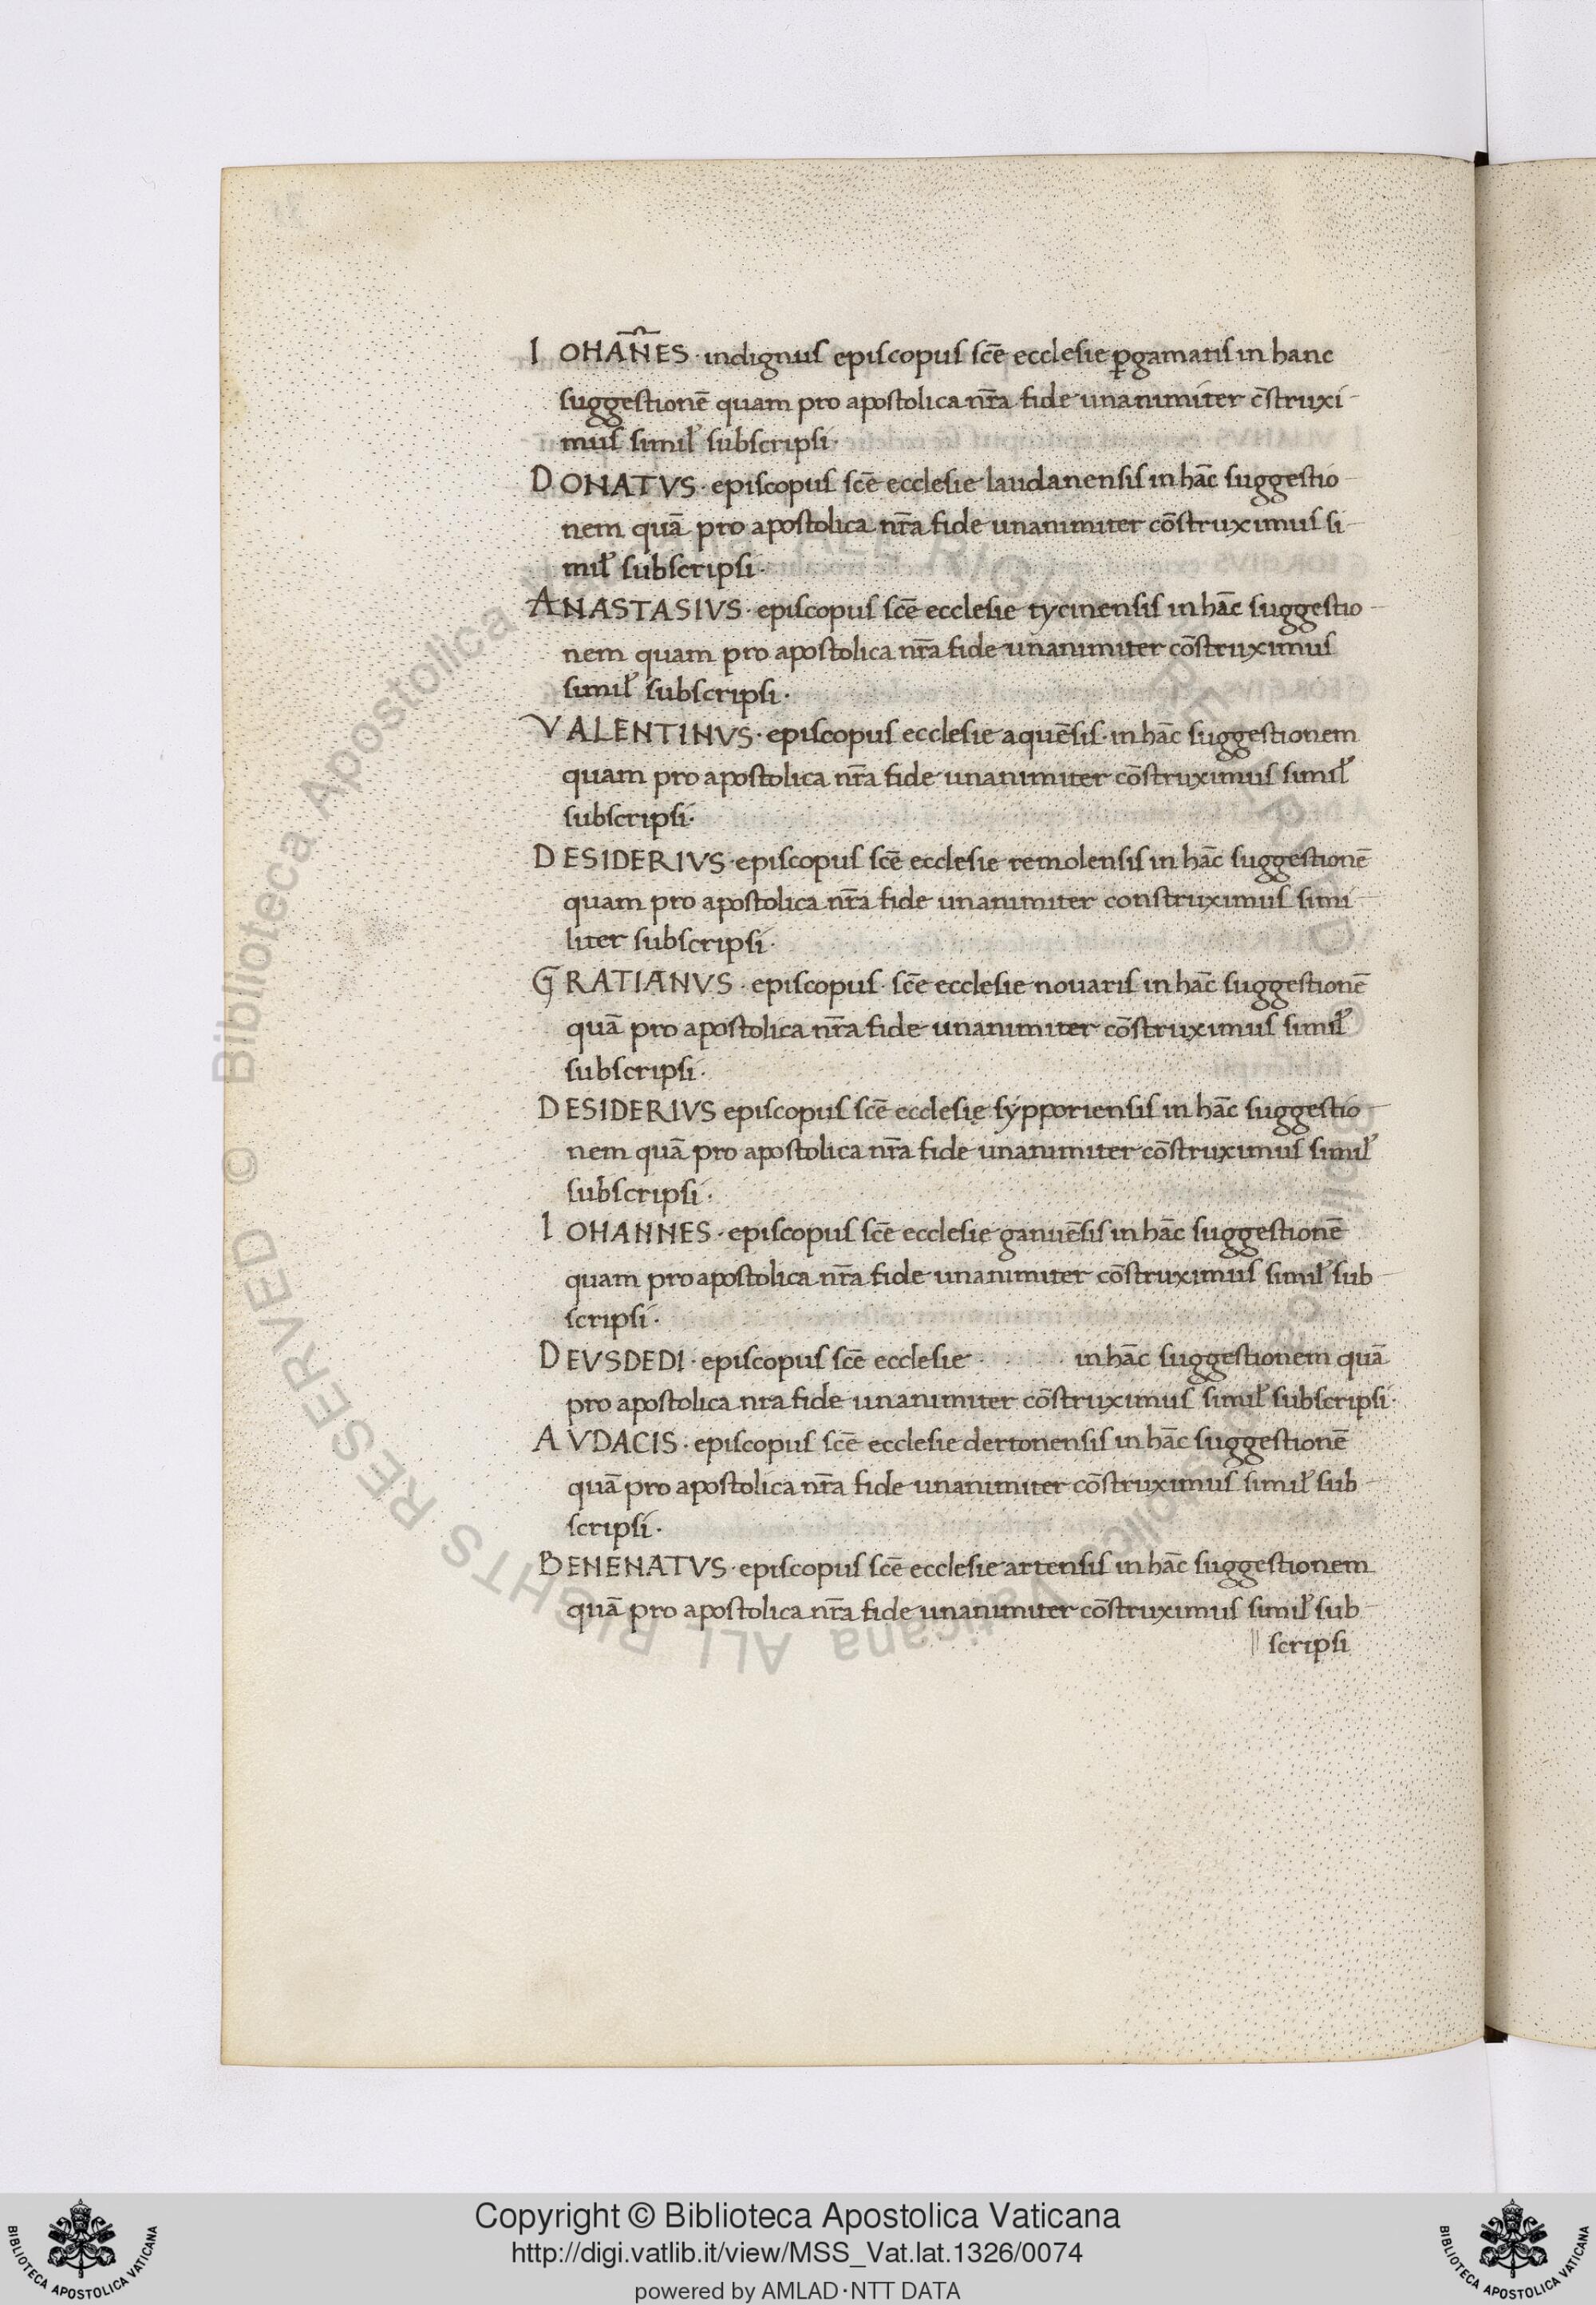 IOHAÑES · indignus episcopus scē ecclesie ꝑgamatis in hanc
suggestionē quam pro apostolica nr̄a fide unanimiter c̄struxi-
mus simił subscripsi·
DONATVS · episcopus scē ecclesie laudanensis in hāc suggestio-
nem quā pro apostolica nr̄a fide unanimiter cōstruximus si-
mił subscripsi·
ANASTASIVS · episcopus scē ecclesie tycinensis in hāc suggestio-
nem quam pro apostolica nr̄a fide unanimiter cōstruximus
simił subscripsi·
VALENTINVS · episcopus ecclesie aquēsis· in hāc suggestionem
quam pro apostolica nr̄a fide unanimiter cōstruximus simił
subscripsi·
DESIDERIVS · episcopus scē ecclesie remolensis in hāc suggestionē
quam pro apostolica nr̄a fide unanimiter construximus simi-
liter subscripsi·
GRATIANVS · episcopus· scē ecclesie nouaris in hāc suggestionē
quā pro apostolica nr̄a fide unanimiter cōstruximus simił
subscripsi·
DESIDERIVS episcopus scē ecclesię sypporiensis in hāc suggestio-
nem quā pro apostolica nr̄a fide unanimiter cōstruximus simił
subscripsi·
IOHANNES · episcopus scē ecclesię ganuēsis in hāc suggestionē
quam pro apostolica nr̄a fide unanimiter cōstruximus simił sub-
scripsi·
DEVSDEDI · episcopus scē ecclesie · · · · · in hāc suggestionem quā
pro apostolica nra fide unanimiter cōstruximus simił subscripsi·
AVDACIS · episcopus scē ecclesie dertonensis in hāc suggestionē
quā pro apostolica nr̄a fide unanimiter cōstruximus simił sub-
scripsi·
BENENATVS · episcopus scē ecclesie artensis in hāc suggestionem
quā pro apostolica nr̄a fide unanimiter cōstruximus simił sub-
|| scripsi
© Biblioteca Apostolica Vaticana ALL RIGHTS RESERVED © Biblioteca Apostolica Vaticana ALL RIGHTS RESERVED
Copyright © Biblioteca Apostolica Vaticana
http://digi.vatlib.it/view/MSS_Vat.lat.1326/0074
powered by AMLAD·NTT DATA
BIBLIOTECA APOSTOLICA VATICANA
BIBLIOTECA APOSTOLICA VATICANA